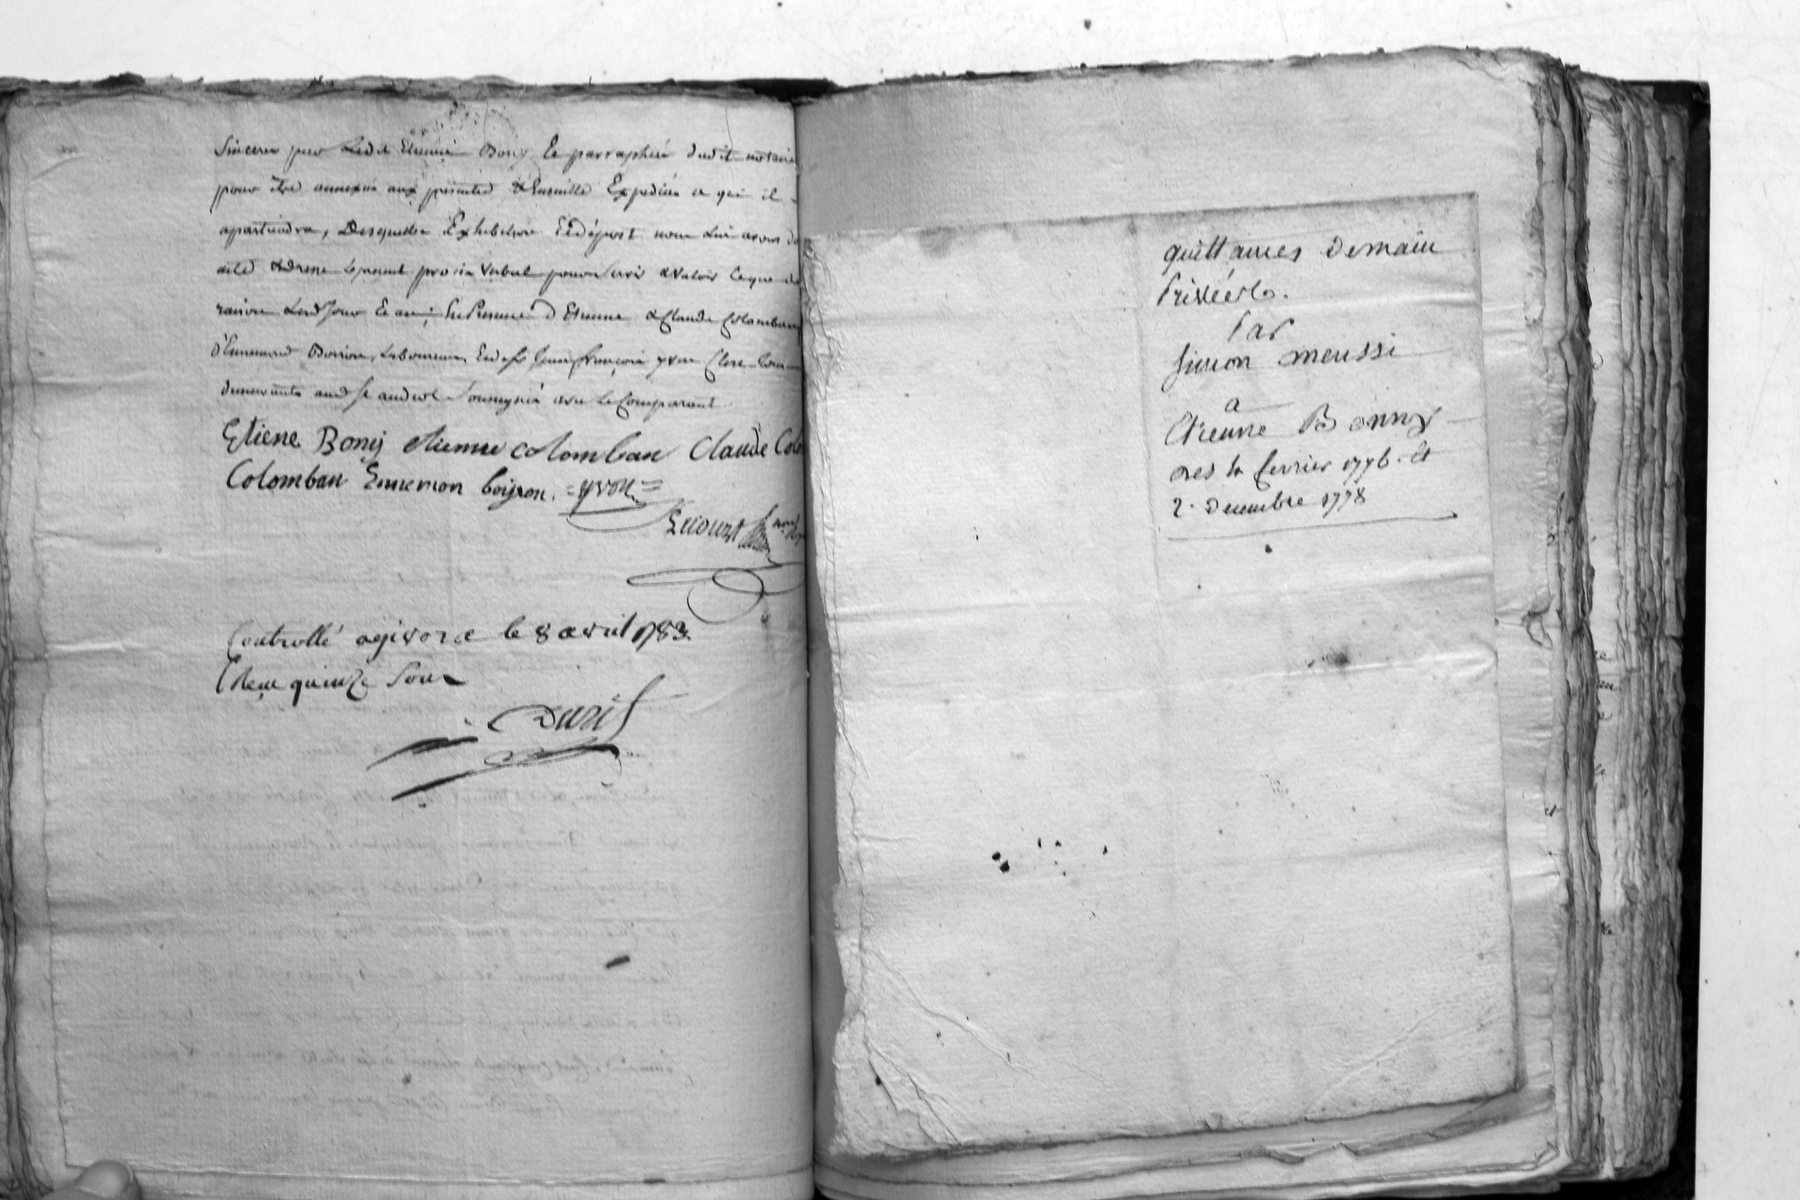 sinceres par Led Etienne Bony Et parraphées dudit notaire
pour être annexées aux présentes & Ensuitte Expediées a qui il
apartiendra, Desquelles Exhibition Et dépost nous Lui avons
acte & dressé Le present procès verbal pour servir & valoir ce que de
raison Lesd jour Et an; En Presence d'Etienne & Claude Colomban
d'Ennemond Boiron, Laboureurs, Et de Sr Jean françois yvon Clerc
demeurants aud St andéol soussignés avec Le Comparant
Etiene Bony etienne colomban Claude Colo
Colomban Ennemon boiyron. =yvon=
Lecourt
Controllé a givors le 8 avril 1783.
Reçu quinze Sous
quittances Demain
Privées.
Par
Simon meussi
a
Etienne Bonny
Des fevrier 1776. Et
2. Decembre 1778